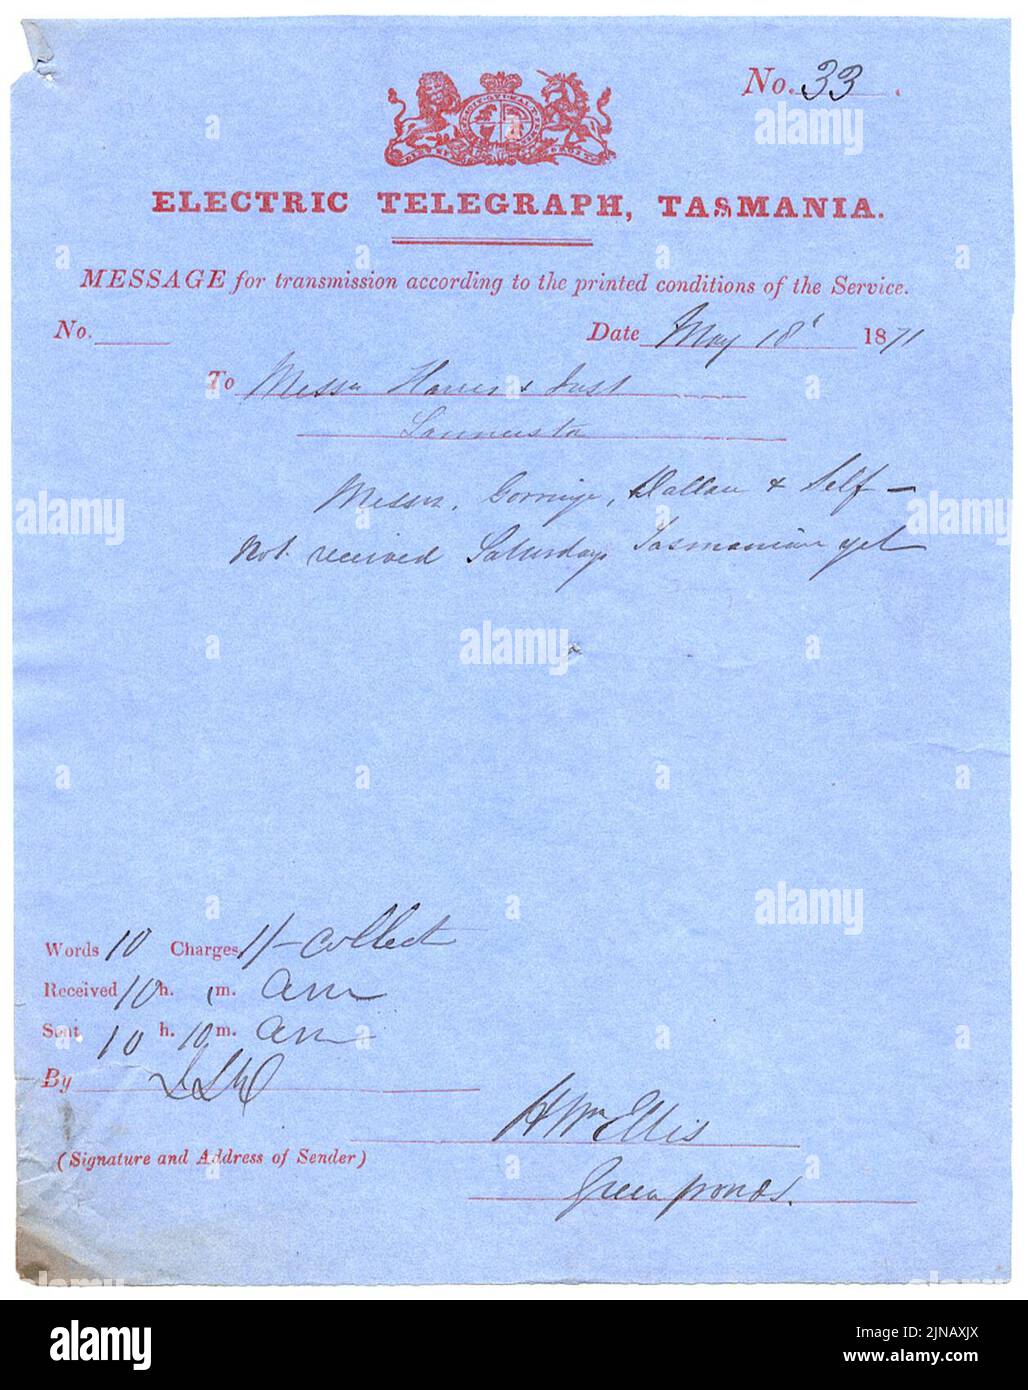 No. 33.
ELECTRIC TELEGRAPH, TASMANIA.
MESSAGE for transmission according to the printed conditions of the Service.
No.
Date May 18 1871
To Messrs Harris & Just
Launceston
Messrs. Gorringe, & Self —
Not received Saturdays Tasmanian yet
Words 10 Charges 1/- collect
Received 10 h. 1 m. am
Sent 10 h. 10 m. am
By
H Wm Ellis
(Signature and Address of Sender)
Green ponds.
alamy
Image ID: 2JNAXJX
www.alamy.com